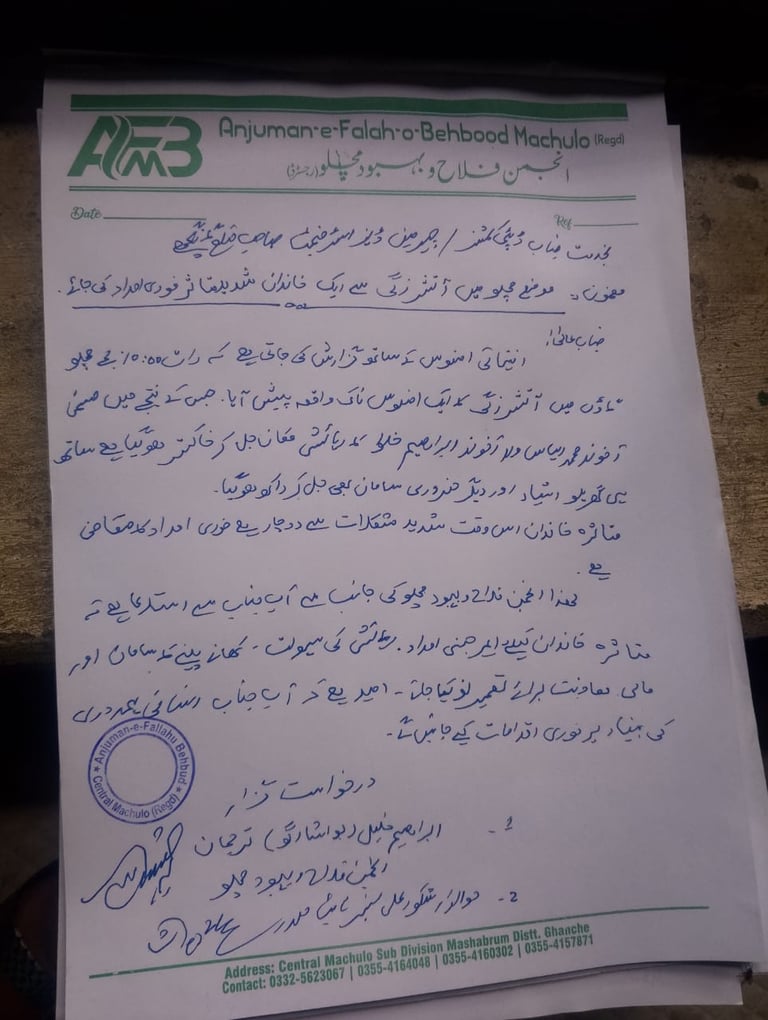 AFMB
Anjuman-e-Falah-o-Behbood Machulo (Regd)
انجمن فلاح و بہبود مچلو (رجسٹرڈ)
Date
Ref
بخدمت جناب ڈپٹی کمشنر / چیرمین ڈیزاسٹر منیجمنٹ صاحب ضلع گانچھے
مضمون: موضع مچلو میں آتشزدگی سے ایک خاندان شدید متاثر فوری امداد کی جائے۔
جناب عالیٰ!
انتہائی افسوس کے ساتھ گزارش کی جاتی ہے کہ رات 10:00 بجے مچلو
ٹاؤن میں آتشزدگی کا ایک افسوس ناک واقعہ پیش آیا۔ جس کے نتیجے میں
آخوند محمد ولد آخوند ابراہیم کا رہائشی مکان جل کر خاکستر ہوگیا ہے ساتھ
ہی گھریلو اشیاء اور دیگر ضروری سامان بھی جل کر راکھ ہوگیا۔
متاثرہ خاندان اس وقت شدید مشکلات سے دوچار ہے فوری امداد کا متقاضی
ہے۔
لھذا انجمن فلاح و بہبود مچلو کی جانب سے آپ جناب سے استدعا ہے کہ
متاثرہ خاندان کیلئے ایمرجنسی امداد، رہائشی کی سہولت، کھانے پینے کا سامان اور
مالی معاونت برائے تعمیر نو کیا جائے۔ امید ہے کہ آپ جناب انسانی ہمدردی
کی بنیاد پر فوری اقدامات کیے جائیں گے۔
Anjuman-e-Fallahu Behbud
Central Machulo (Regd)
درخواست گزار
1- ابراہیم خلیل ترجمان
انجمن فلاح و بہبود مچلو
2- حوالدار شکور علی نائب صدر
Address: Central Machulo Sub Division Mashabrum Distt. Ghanche
Contact: 0332-5623067 | 0355-4164048 | 0355-4160302 | 0355-4157871